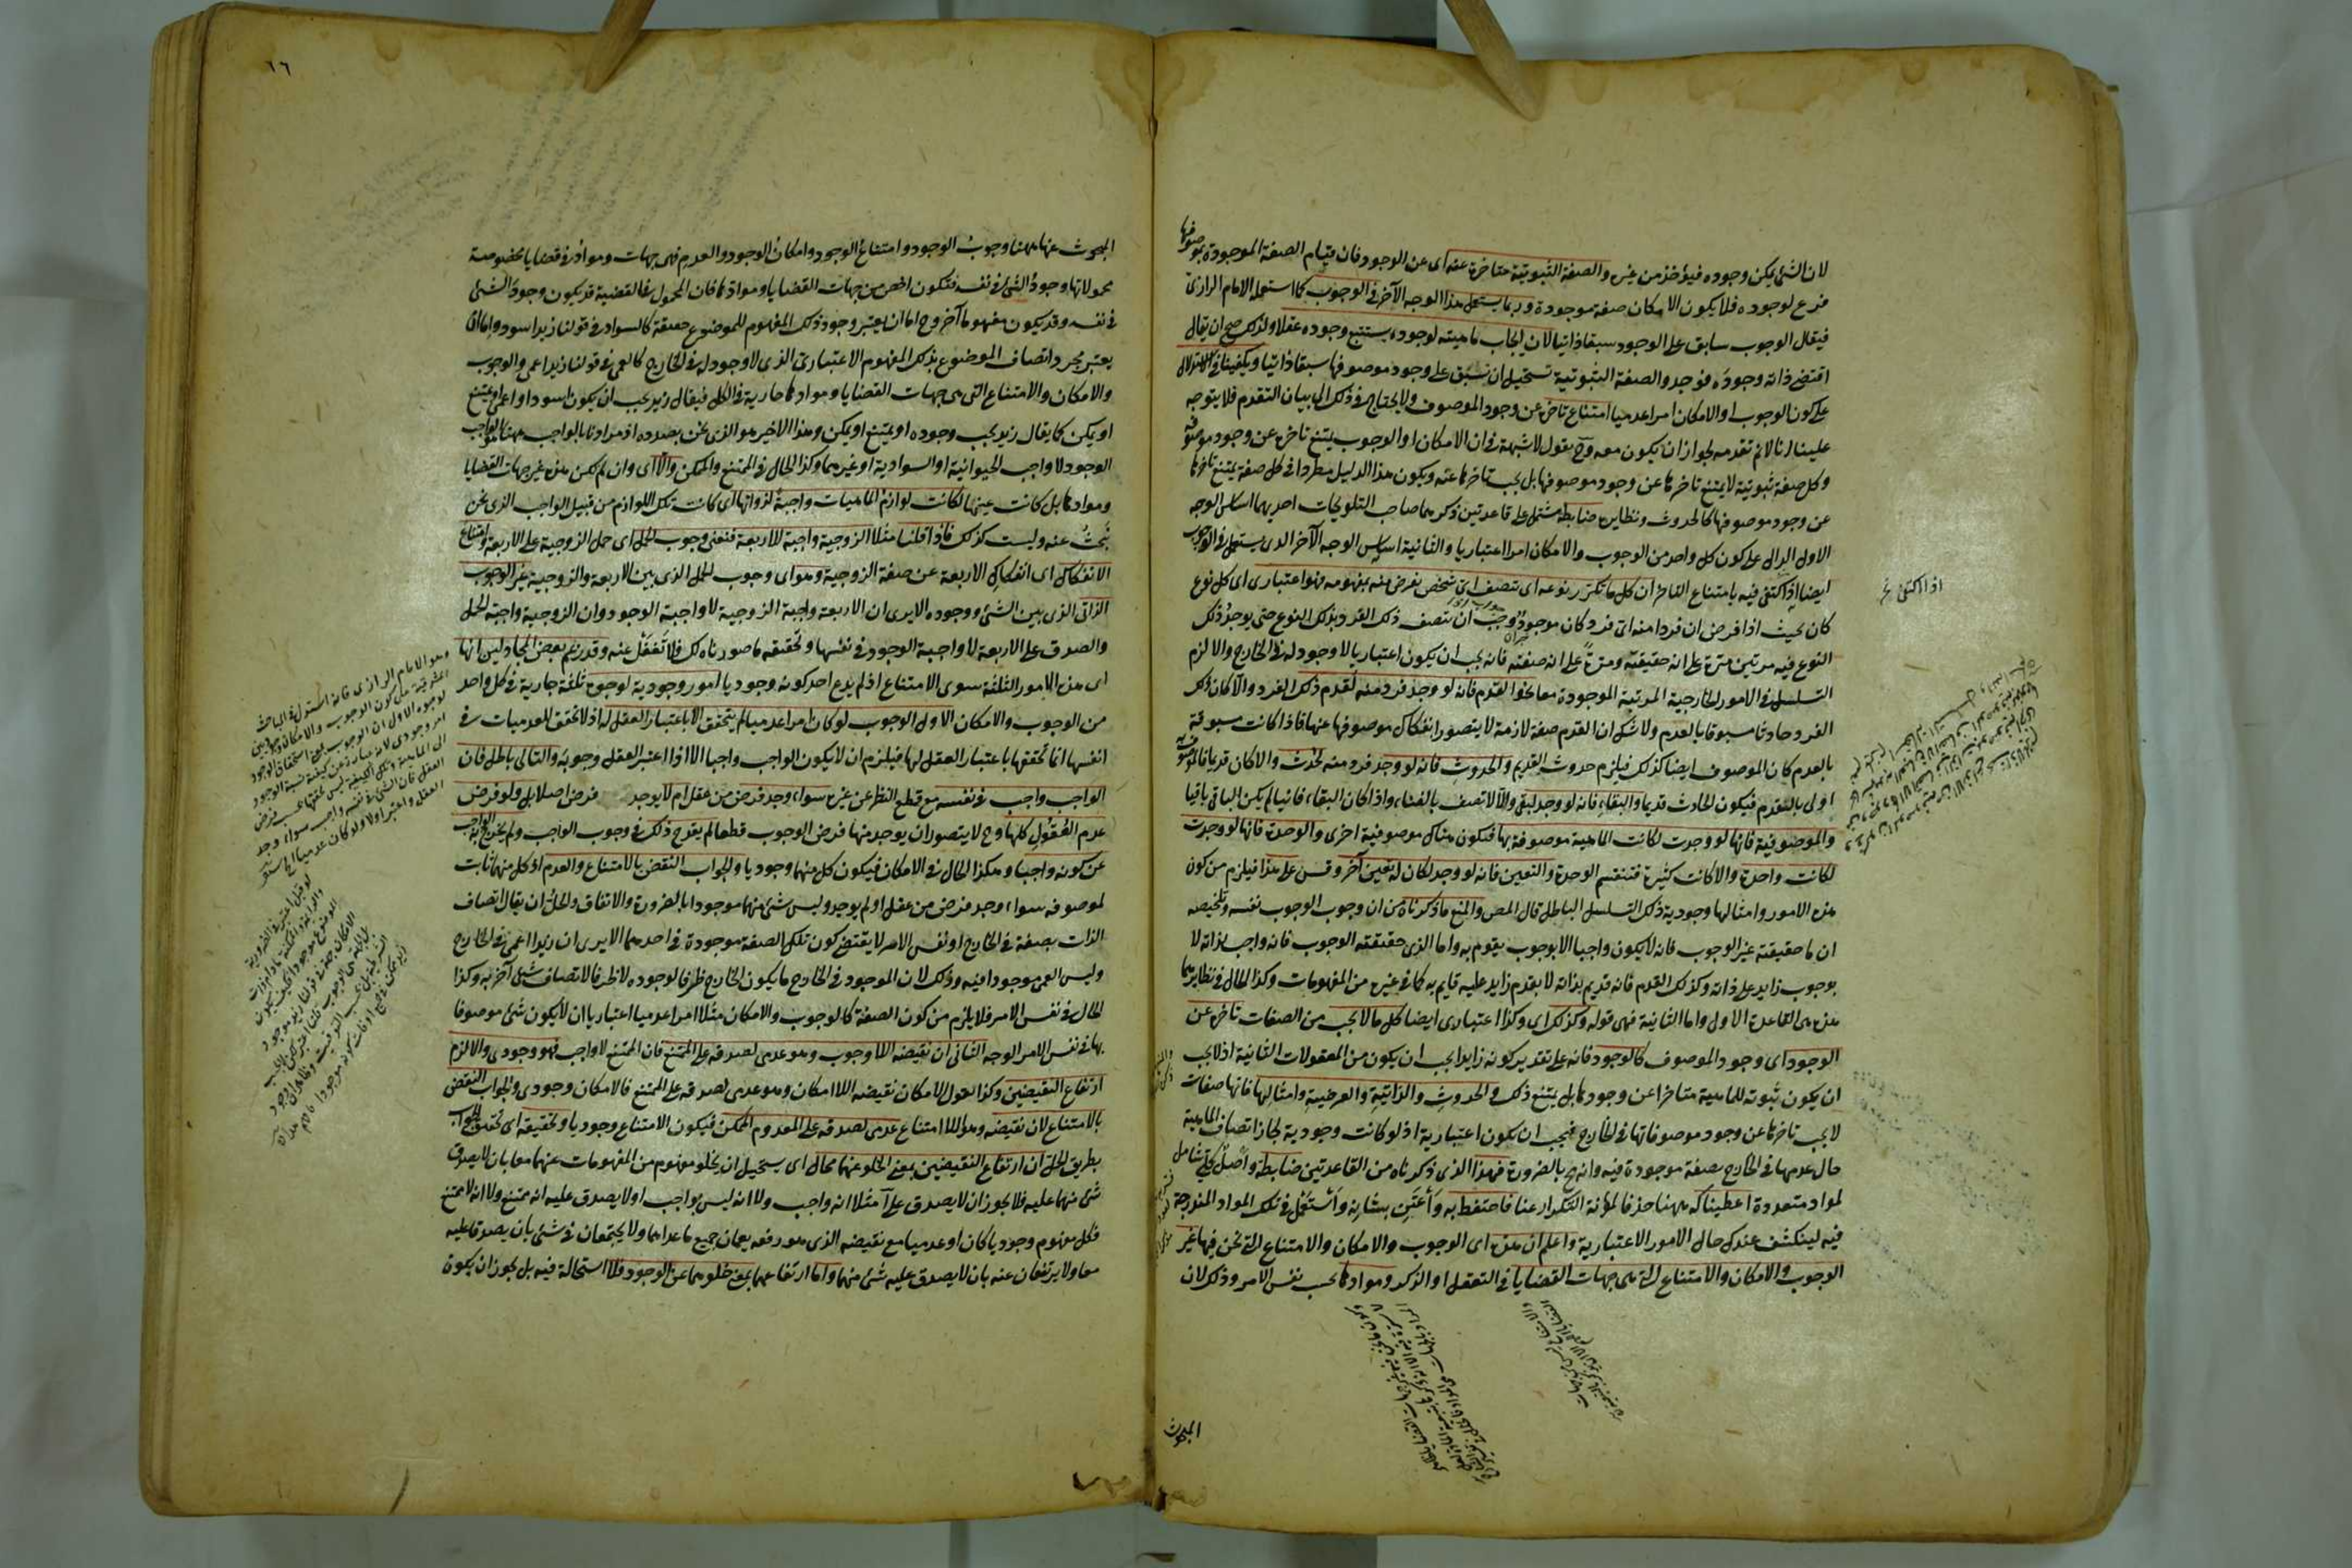 لان الشئ يمكن وجوده فيؤخذ من غيره والصفة الثبوتية متاخرة عنه اى عن الوجود فان قيام الصفة الموجودة بموصوفها
فرع لوجوده فلا يكون الامكان صفة موجودة وربما يستعمل هذا الوجه الآخر فى الوجوب كما استعمله الامام الرازى
فيقال الوجوب سابق على الوجود سبقا ذاتيا لان ايجاب ماهيته لوجوده يستتبع وجوده عقلا ولذلك صح ان يقال
اقتضى ذاته وجوده فوجد والصفة الثبوتية تستحيل ان تسبق على وجود موصوفها سبقا ذاتيا ويكفينا فى الاستدلال
على كون الوجوب او الامكان امرا عدميا امتناع تاخره عن وجود الموصوف ولا يحتاج فى ذلك الى بيان التقدم فلا يتوجه
علينا انا لا نم تقدمه لجواز ان يكون معه وح نقول لا شبهة فى ان الامكان او الوجوب يمتنع تاخره عن وجود موصوفه
وكل صفة ثبوتية لا يمتنع تاخرها عن وجود موصوفها بل يجب تاخرها عنه ويكون هذا الدليل مطردا فى كل صفة يمتنع تاخرها
عن وجود موصوفها كالحدوث ونظايره ضابطة مشتمل على قاعدتين ذكرهما صاحب التلويحات احديهما اساس الوجه
الاول الدال على كون كل واحد من الوجوب والامكان امرا اعتباريا والثانية اساس الوجه الآخر الذى يستعمل فى الوجوب
ايضا اذا اكتفى فيه بامتناع التاخر ان كل ما تكرر نوعه اى يتصف اى شخص يفرض منه بمفهومه فهو اعتبارى اى كل نوع
كان بحيث اذا فرض ان فردا منه اى فرد كان موجود وجب ان يتصف ذلك الفرد بذلك النوع حتى يوجد ذلك
النوع فيه مرتين مرة على انه حقيقته ومرة على انه صفته فانه يجب ان يكون اعتباريا لا وجود له فى الخارج والا لزم
التسلسل فى الامور الخارجية المرتبة الموجودة معا نحو القدم فانه لو وجد فرد منه لقدم ذلك الفرد والا كان ذلك
الفرد حادثا مسبوقا بالعدم ولا شك ان القدم صفة لازمة لا يتصور انفكاك موصوفها عنها فاذا كانت مسبوقة
بالعدم كان الموصوف ايضا كذلك فيلزم حدوث القديم والحدوث فانه لو وجد فرد منه لحدث والا كان قديما فالموصوف به
اولى بالقدم فيكون الحادث قديما والبقاء فانه لو وجد لبقى والا لاتصف بالفناء واذا كان البقاء فانيا لم يكن الباقى باقيا
والموصوفية فانها لو وجدت لكانت الماهية موصوفة بها فتكون هناك موصوفية اخرى والوحدة فانها لو وجدت
لكانت واحدة والا كانت كثيرة فتنقسم الوحدة والتعين فانه لو وجد لكان له تعين آخر وقس على هذا فيلزم من كون
هذه الامور وامثالها وجودية ذلك التسلسل الباطل قال المص والمنع ما ذكرناه من ان وجوب الوجوب نفسه وتلخيصه
ان ما حقيقته غير الوجوب فانه لا يكون واجبا الا بوجوب يقوم به واما الذى حقيقته الوجوب فانه واجب بذاته لا
بوجوب زايد على ذاته وكذلك القدم فانه قديم بذاته لا بقدم زايد عليه قايم به كما فى غيره من المفهومات وكذا الحال فى نظايرهما
هذه هى القاعدة الاولى واما الثانية فهى قوله وكذلك اى وكذا اعتبارى ايضا كل ما لا يجب من الصفات تاخره عن
الوجود اى وجود الموصوف كالوجود فانه على تقدير كونه زايدا يجب ان يكون من المعقولات الثانية اذ لا يجب
ان يكون ثبوته للماهية متاخرا عن وجودها بل يمتنع ذلك والحدوث والذاتية والعرضية وامثالها فانها صفات
لا يجب تاخرها عن وجود موصوفاتها فى الخارج فيجب ان يكون اعتبارية اذ لو كانت وجودية لجاز اتصاف الماهية
حال عدمها فى الخارج بصفة موجودة فيه وانه مح بالضرورة فهذا الذى ذكرناه من القاعدتين ضابطة واصل كلى شامل
لمواد متعددة اعطيناكه ههنا حذفا لمؤنة التكرار عنا فاحتفظ به واعتن بشانه واستعمل فى تلك المواد المندرجة
فيه لينكشف عندك حال الامور الاعتبارية واعلم ان هذه اى الوجوب والامكان والامتناع التى نحن فيها غير
الوجوب والامكان والامتناع التى هى جهات القضايا فى التعقل او الذكر وموادها بحسب نفس الامر وذلك لان
اذا اكتفى نخ
المبحوث
١٦
المبحوث عنها ههنا وجوب الوجود وامتناع الوجود وامكان الوجود والعدم فهى جهات ومواد فى قضايا مخصوصة
محمولاتها وجود الشئ فى نفسه فتكون اخص من جهات القضايا وموادها فان المحمول فى القضية قد يكون وجود الشئ
فى نفسه وقد يكون مفهوما آخر وح اما ان يعتبر وجود ذلك المفهوم للموضوع حقيقة كالسواد فى قولنا زيد اسود واما ان
يعتبر مجرد اتصاف الموضوع بذلك المفهوم الاعتبارى الذى لا وجود له فى الخارج كالعمى فى قولنا زيد اعمى والوجوب
والامكان والامتناع التى هى جهات القضايا وموادها جارية فى الكل فيقال زيد يجب ان يكون اسود او اعمى او يمتنع
او يمكن كما يقال زيد يجب وجوده او يمتنع او يمكن وهذا الاخير هو الذى نحن بصدده اذ مرادنا بالواجب ههنا الواجب
الوجود لا واجب الحيوانية او السوادية او غيرهما وكذا الحال فى الممتنع والممكن والا اى وان لم يكن هذه غير جهات القضايا
وموادها بل كانت عينها لكانت لوازم الماهيات واجبة لذواتها اى كانت تلك اللوازم من قبيل الواجب الذى نحن
نبحث عنه وليست كذلك فاذا قلنا مثلا الزوجية واجبة للاربعة فنعنى وجوب الحمل اى حمل الزوجية على الاربعة وامتناع
الانفكاك اى انفكاك الاربعة عن صفة الزوجية وهو اى وجوب الحمل الذى بين الاربعة والزوجية غير الوجوب
الذاتى الذى بين الشئ ووجوده الا يرى ان الاربعة واجبة الزوجية لا واجبة الوجود وان الزوجية واجبة الحمل
والصدق على الاربعة لا واجبة الوجود فى نفسها وتحقيقه ما صورناه لك فلا تغفل عنه وقد زعم بعض المجادلين انها
اى هذه الامور الثلثة سوى الامتناع اذ لم يدع احد كونه وجوديا امور وجودية لوجوه ثلثة جارية فى كل واحد
من الوجوب والامكان الاول الوجوب لو كان امرا عدميا لم يتحقق الا باعتبار العقل له اذ لا تحقق للعدميات فى
انفسها انما تحققها باعتبار العقل لها فيلزم ان لا يكون الواجب واجبا الا اذا اعتبر العقل وجوبه والتالى باطل فان
الواجب واجب فى نفسه مع قطع النظر عن غيره سواء وجد فرض من عقل ام لا يوجد فرض اصلا بل ولو فرض
عدم العقول كلها وح لا يتصور ان يوجد منها فرض الوجوب قطعا لم يقدح ذلك فى وجوب الواجب ولم يخرج الواجب به
عن كونه واجبا وهكذا الحال فى الامكان فيكون كل منهما وجوديا والجواب النقض بالامتناع والعدم اذ كل منهما ثابت
لموصوفه سواء وجد فرض من عقل او لم يوجد وليس شئ منهما موجودا بالضرورة والاتفاق والحل ان يقال اتصاف
الذات بصفة فى الخارج او نفس الامر لا يقتضى كون تلك الصفة موجودة فى احدهما الا يرى ان زيدا اعمى فى الخارج
وليس العمى موجودا فيه وذلك لان الموجود فى الخارج ما يكون الخارج ظرفا لوجوده لا ظرفا لاتصاف شئ آخر به وكذا
الحال فى نفس الامر فلا يلزم من كون الصفة كالوجوب والامكان مثلا امرا عدميا اعتباريا ان لا يكون شئ موصوفا
بها فى نفس الامر الوجه الثانى ان نقيضه اللاوجوب وهو عدمى لصدقه على الممتنع فان الممتنع لا واجب فهو وجودى والا لزم
ارتفاع النقيضين وكذا القول الامكان نقيضه اللاامكان وهو عدمى لصدقه على الممتنع فالامكان وجودى والجواب النقض
بالامتناع لان نقيضه وهو اللاامتناع عدمى لصدقه على المعدوم الممكن فيكون الامتناع وجوديا وتحقيقه اى تحقيق الجواب
بطريق الحل ان ارتفاع النقيضين بمعنى الخلو عنهما محال اى يستحيل ان يخلو مفهوم من المفهومات عنهما معا بان لا يصدق
شئ منهما عليه فلا يجوز ان لا يصدق على آ مثلا انه واجب ولا انه ليس بواجب او لا يصدق عليه انه ممتنع ولا انه لا ممتنع
فكل مفهوم وجوديا كان او عدميا مع نقيضه الذى هو رفعه يعمان جميع ما عداهما ولا يجتمعان فى شئ بان يصدقا عليه
معا ولا يرتفعان عنه بان لا يصدق عليه شئ منهما واما ارتفاعهما بمعنى خلوهما عن الوجود فلا استحالة فيه بل يجوز ان يكون
وهو الامام الرازى فانه استدل فى المباحث